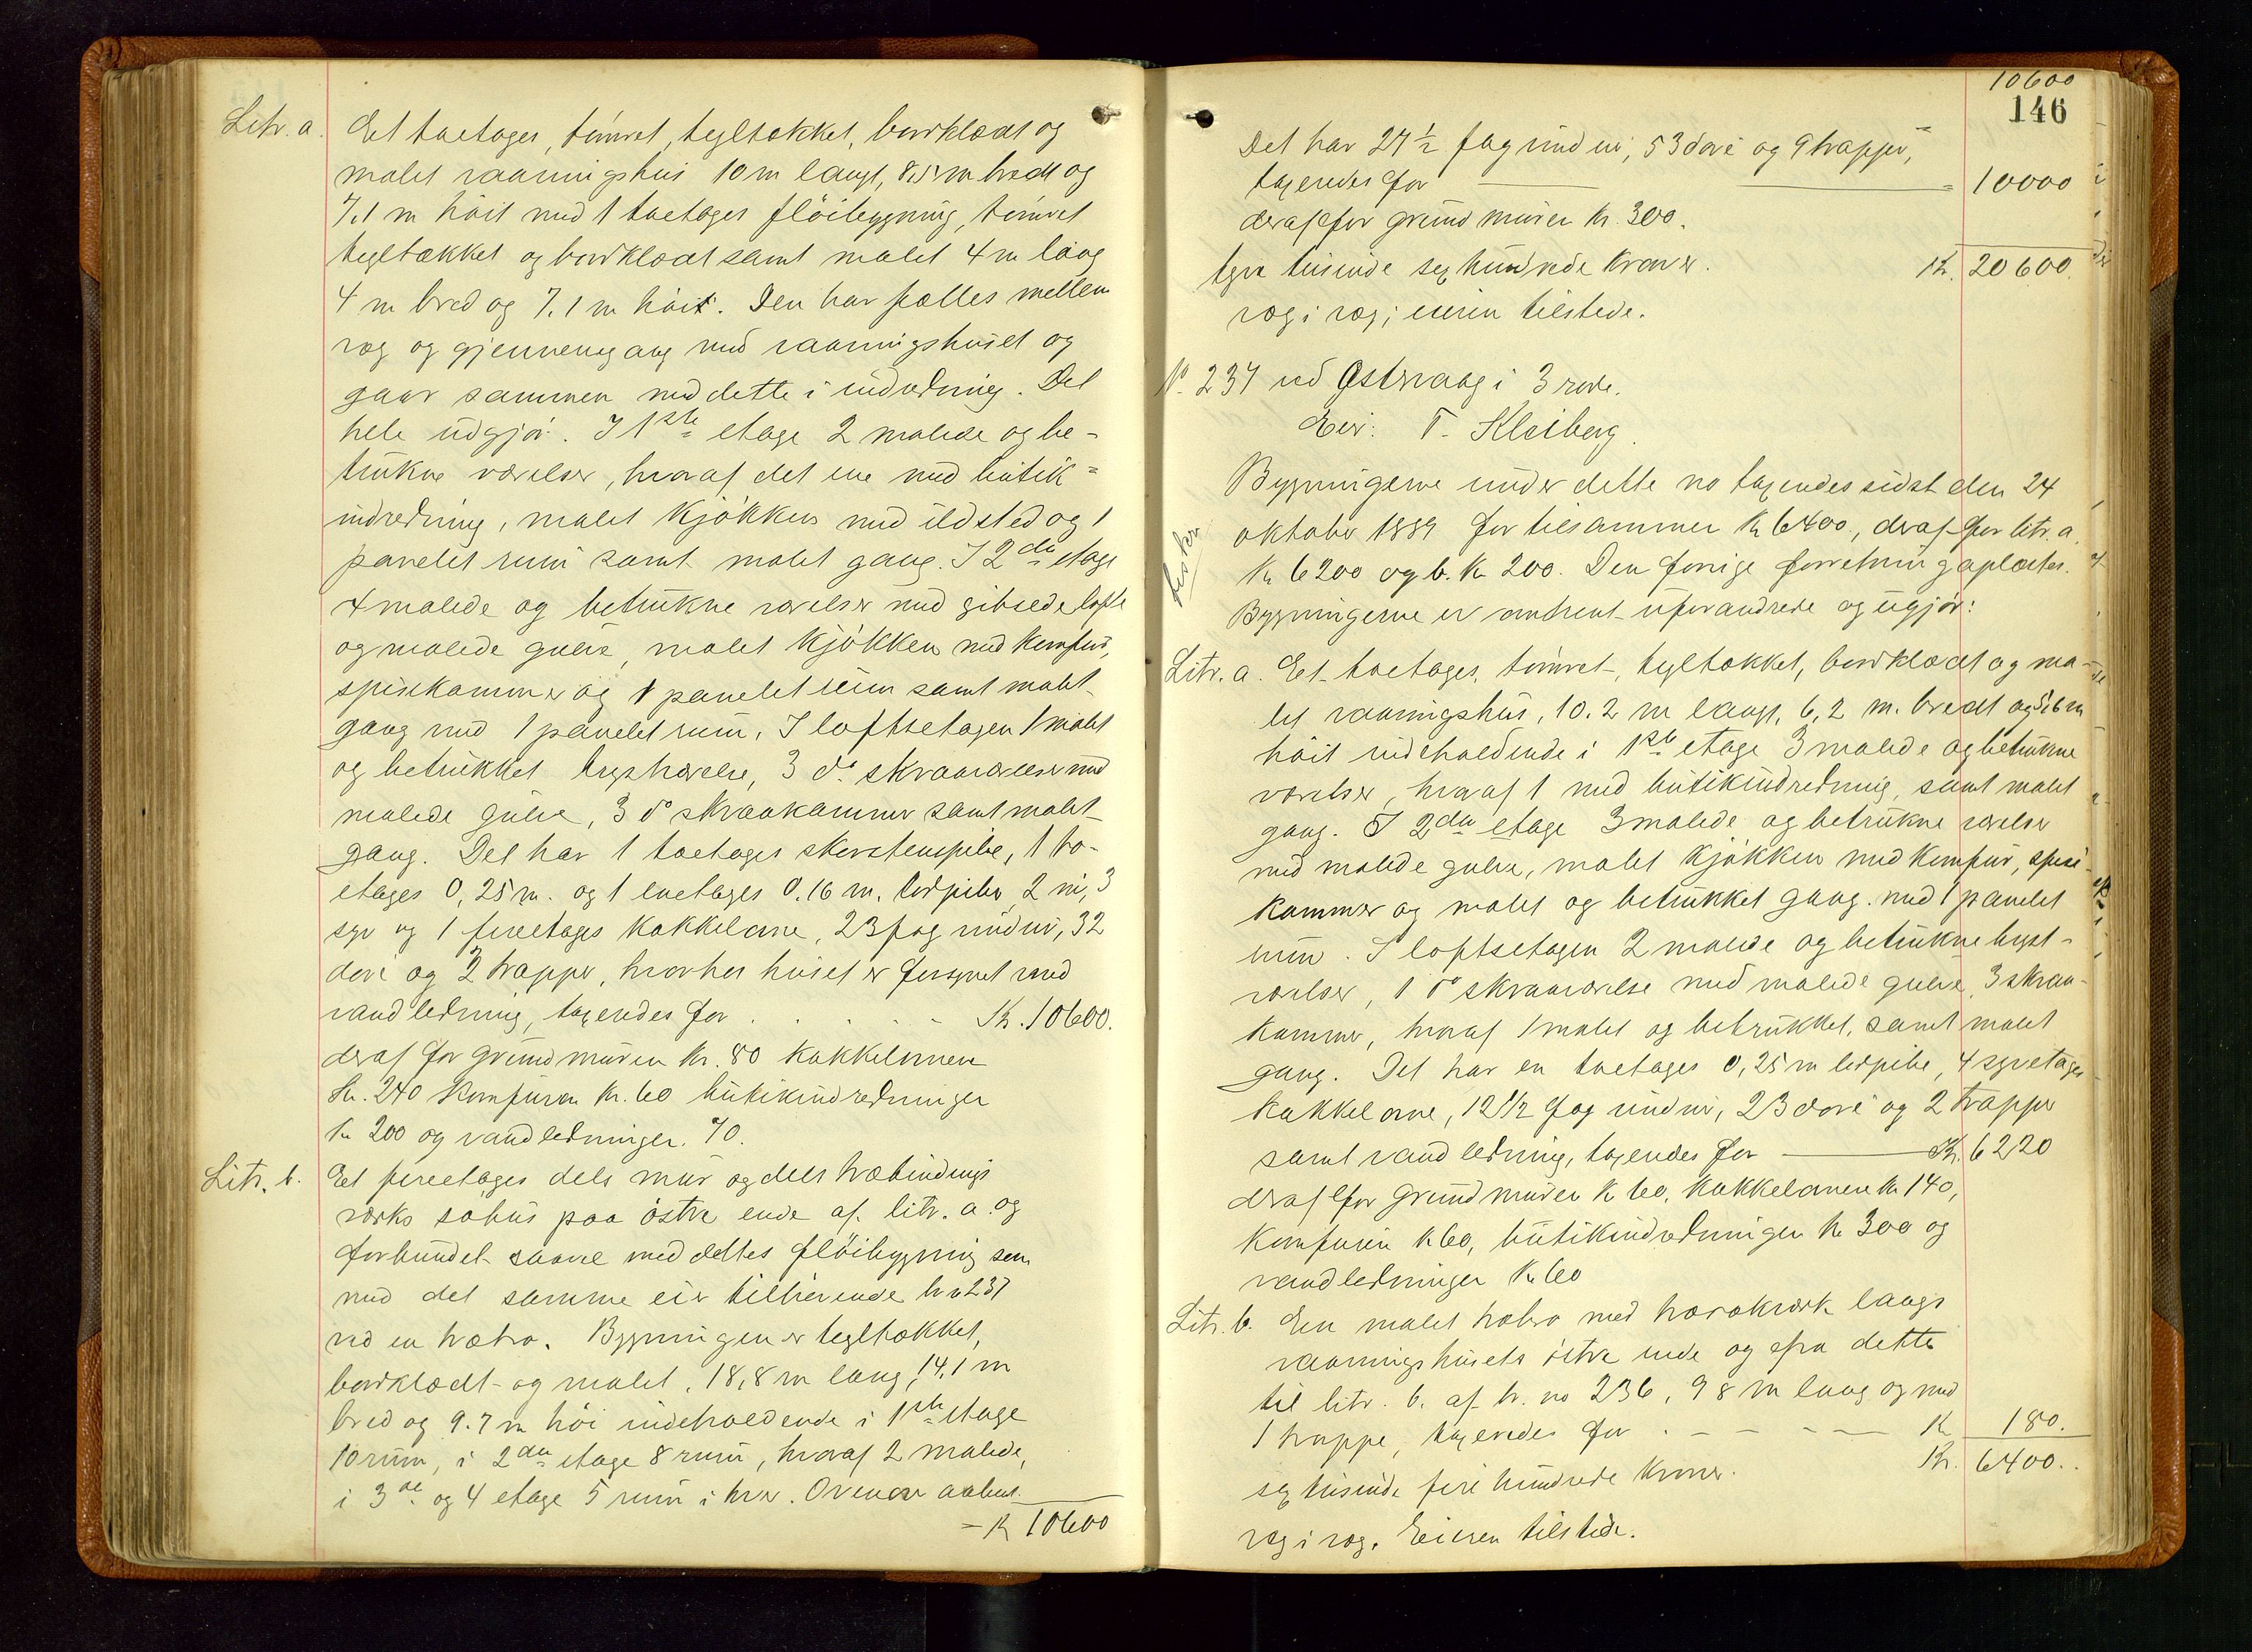 Litr. a. Et toetages, tømret, tegltækket, bordklædt og
malet vaaningshus 10 m langt, 8,5 m bredt og
7,1 m høit med 1 toetages fløibygning, tømret
tegltækket og bordklædt samt malet 4 m lang
4 m bred og 7,1 m høit. Den har fælles mellem
væg og gjennemgang med vaaningshuset og
gaar sammen med dette i indredning. Det
hele udgjør: I 1ste etage 2 malede og be-
trukne værelser, hvoraf det ene med butik-
indredning, malet kjøkken med ildsted og 1
panelet rum samt malet gang. I 2den etage
4 malede og betrukne værelser med gibsede lofte
og malede gulve, malet kjøkken med komfur,
spisekammer og 1 panelet rum samt malet
gang med 1 panelet rum. I loftsetagen 1 malet
og betrukket kvistværelse, 3 do skraaværelser med
malede gulve, 3 do skraakammer samt malet
gang. Det har 1 toetages skorstenspibe, 1 to-
etages 0,25 m. og 1 enetages 0.16 m. lerpiber, 2 ni, 3
syv og 1 fireetages kakkelovne, 23 fag vinduer, 32
døre og 2 trapper, hvorhos huset er forsynet med
vandledning, taxeredes for . . . . . Kr. 10600.
deraf for grundmuren Kr. 80 kakkelovnene
Kr. 240 komfuren Kr. 60 butikindredningen
Kr 200 og vandledningen 70.
Litr. b. Et fireetages dels mur og dels træbindings
værks søhus paa østre ende af litr. a. og
forbundet saavel med dettes fløibygning som
med det samme eier tilhørende br n 237
ved en træbro. Bygningen er tegltækket,
bordklædt og malet, 18,8 m lang, 14,1 m
bred og 9.7 m høi indeholdende i 1ste etage
10 rum, i 2den etage 8 rum, hvoraf 2 malede,
i 3de og 4 etage 5 rum i hver. Ovenover aabent.
- Kr 10600
10600
146
Det har 27 1/2 fag vinduer, 53 døre og 9 trapper,
taxeredes for - 10000
deraf for grundmuren Kr. 300.
tyve tusinde sex hundrede kroner. Kr. 20600.
væg i væg; eieren tilstede.
No. 237 ved Østervaag i 3 rode.
Eier: T. Kleiberg.
Bygningerne under dette no taxeredes sidst den 24
oktober 1889 for tilsammen Kr 6400, deraf for litr. a.
Kr 6200 og b. Kr 200. Den forrige forretning aflæstes.
Bygningerne er omtrent uforandrede og ugjør:
Litr. a. Et toetages, tømret, tegltækket, bordklædt og ma-
let vaaningshus, 10.2 m langt, 6,2 m. bredt og 5.6 m
høit indeholdende i 1ste etage 3 malede og betrukne
værelser, hvoraf 1 med butikindredning, samt malet
gang. I 2den etage 3 malede og betrukne værelser
med malede gulve, malet kjøkken med komfur, spise-
kammer og malet og betrukket gang med 1 panelet
rum. I loftsetagen 2 malede og betrukne kvist-
værelser, 1 do skraaværelse med malede gulve, 3 skraa-
kammer, hvoraf 1 malet og betrukket, samt malet
gang. Det har en toetages 0,25 m lerpibe, 4 syvetages
kakkelovne, 12 1/2 fag vinduer, 23 døre og 2 trapper
samt vandledning, taxeredes for Kr. 6220
deraf for grundmuren Kr 60, kakkelovnene Kr 140,
komfuren Kr 60, butikindredningen Kr 300 og
vandledningen Kr 60
Litr. b. En malet træbro med trærækværk langs
vaaningshusets østre ende og fra dette
til litr. b. af br. no 236, 9 8 m lang og med
1 trappe, taxeredes for . - - - - Kr 180.
sex tusinde fire hundrede kroner. Kr. 6400.
væg i væg. Eieren tilstede.